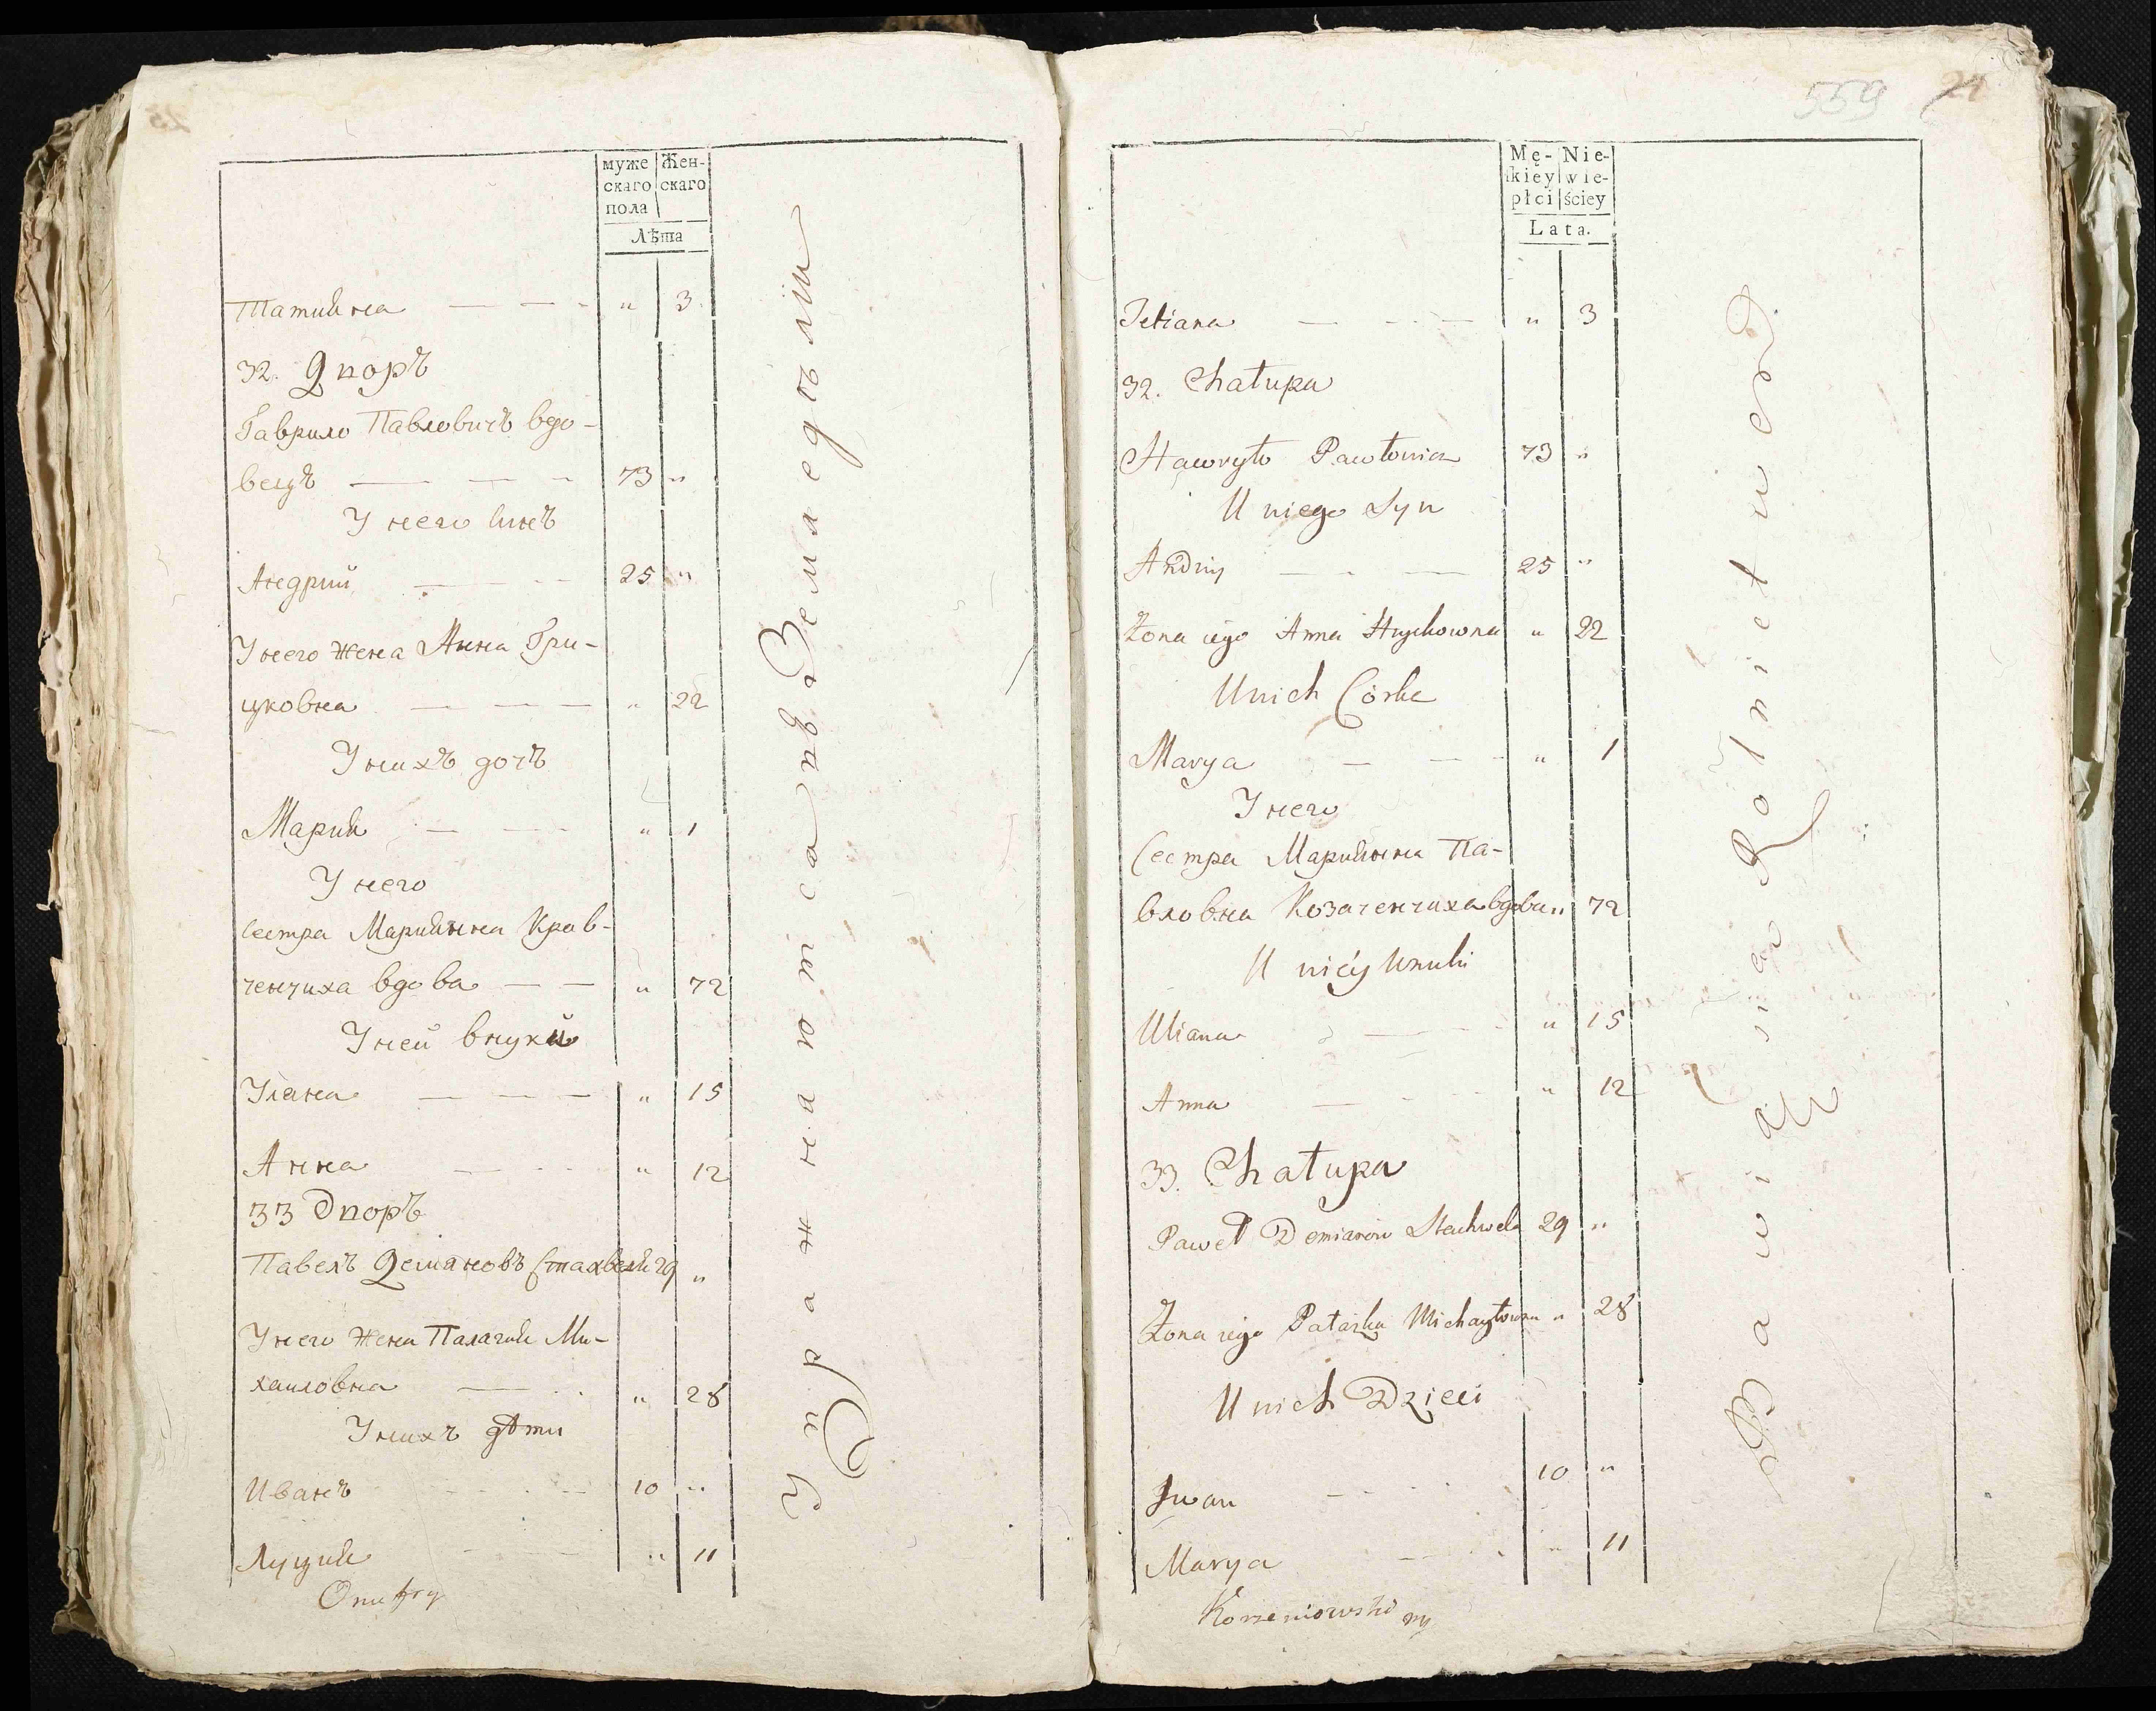 муже
скаго
пола
Жен-
скаго
Лѣта
Татиана — — - " 3
32. Дворъ
Гаврило Павловичъ вдо-
вецъ — — - 73 "
У него синъ
Андрий — - - 25 "
У него жена Анна Гри-
цковна — — — " 22
У нихъ дочь
Мария — — " 1
У него
Сестра Марианна Крав-
ченчиха вдова — — " 72
У ней внуки
Уляна — — — " 15
Анна — - - " 12
33 Дворъ
Павелъ Демяновъ Стахвель 29 "
У него жена Палагия Ми-
хаиловна — - - " 28
У нихъ дѣти
Иванъ - - - 10 "
Луция - — " 11
Упражнаютса въ Земледѣлии
559 24
Mę-
kiey
płci
Nie-
wie-
ściey
Lata.
Tetiana — - - — " 3
32. Chałupa
Hawryło Pawłowicz 73 "
U niego Syn
Andriy — - — 25 "
Żona iego Anna Hryckowna " 22
U nich Córka
Marya — — - " 1
У него
Сестра Марианна Па-
вловна Козаченчиха вдова " 72
U niéy Wnuki
Uliana - — - - " 15
Anna — - - - " 12
33. Chałupa
Paweł Demianow Stachwela 29 "
Żona iego Pałażka Michayłowna " 28
U nich Dzieci
Iwan - - - - 10 "
Marya - - - " 11
Korzeniowski
Bawią się Rolnictwem